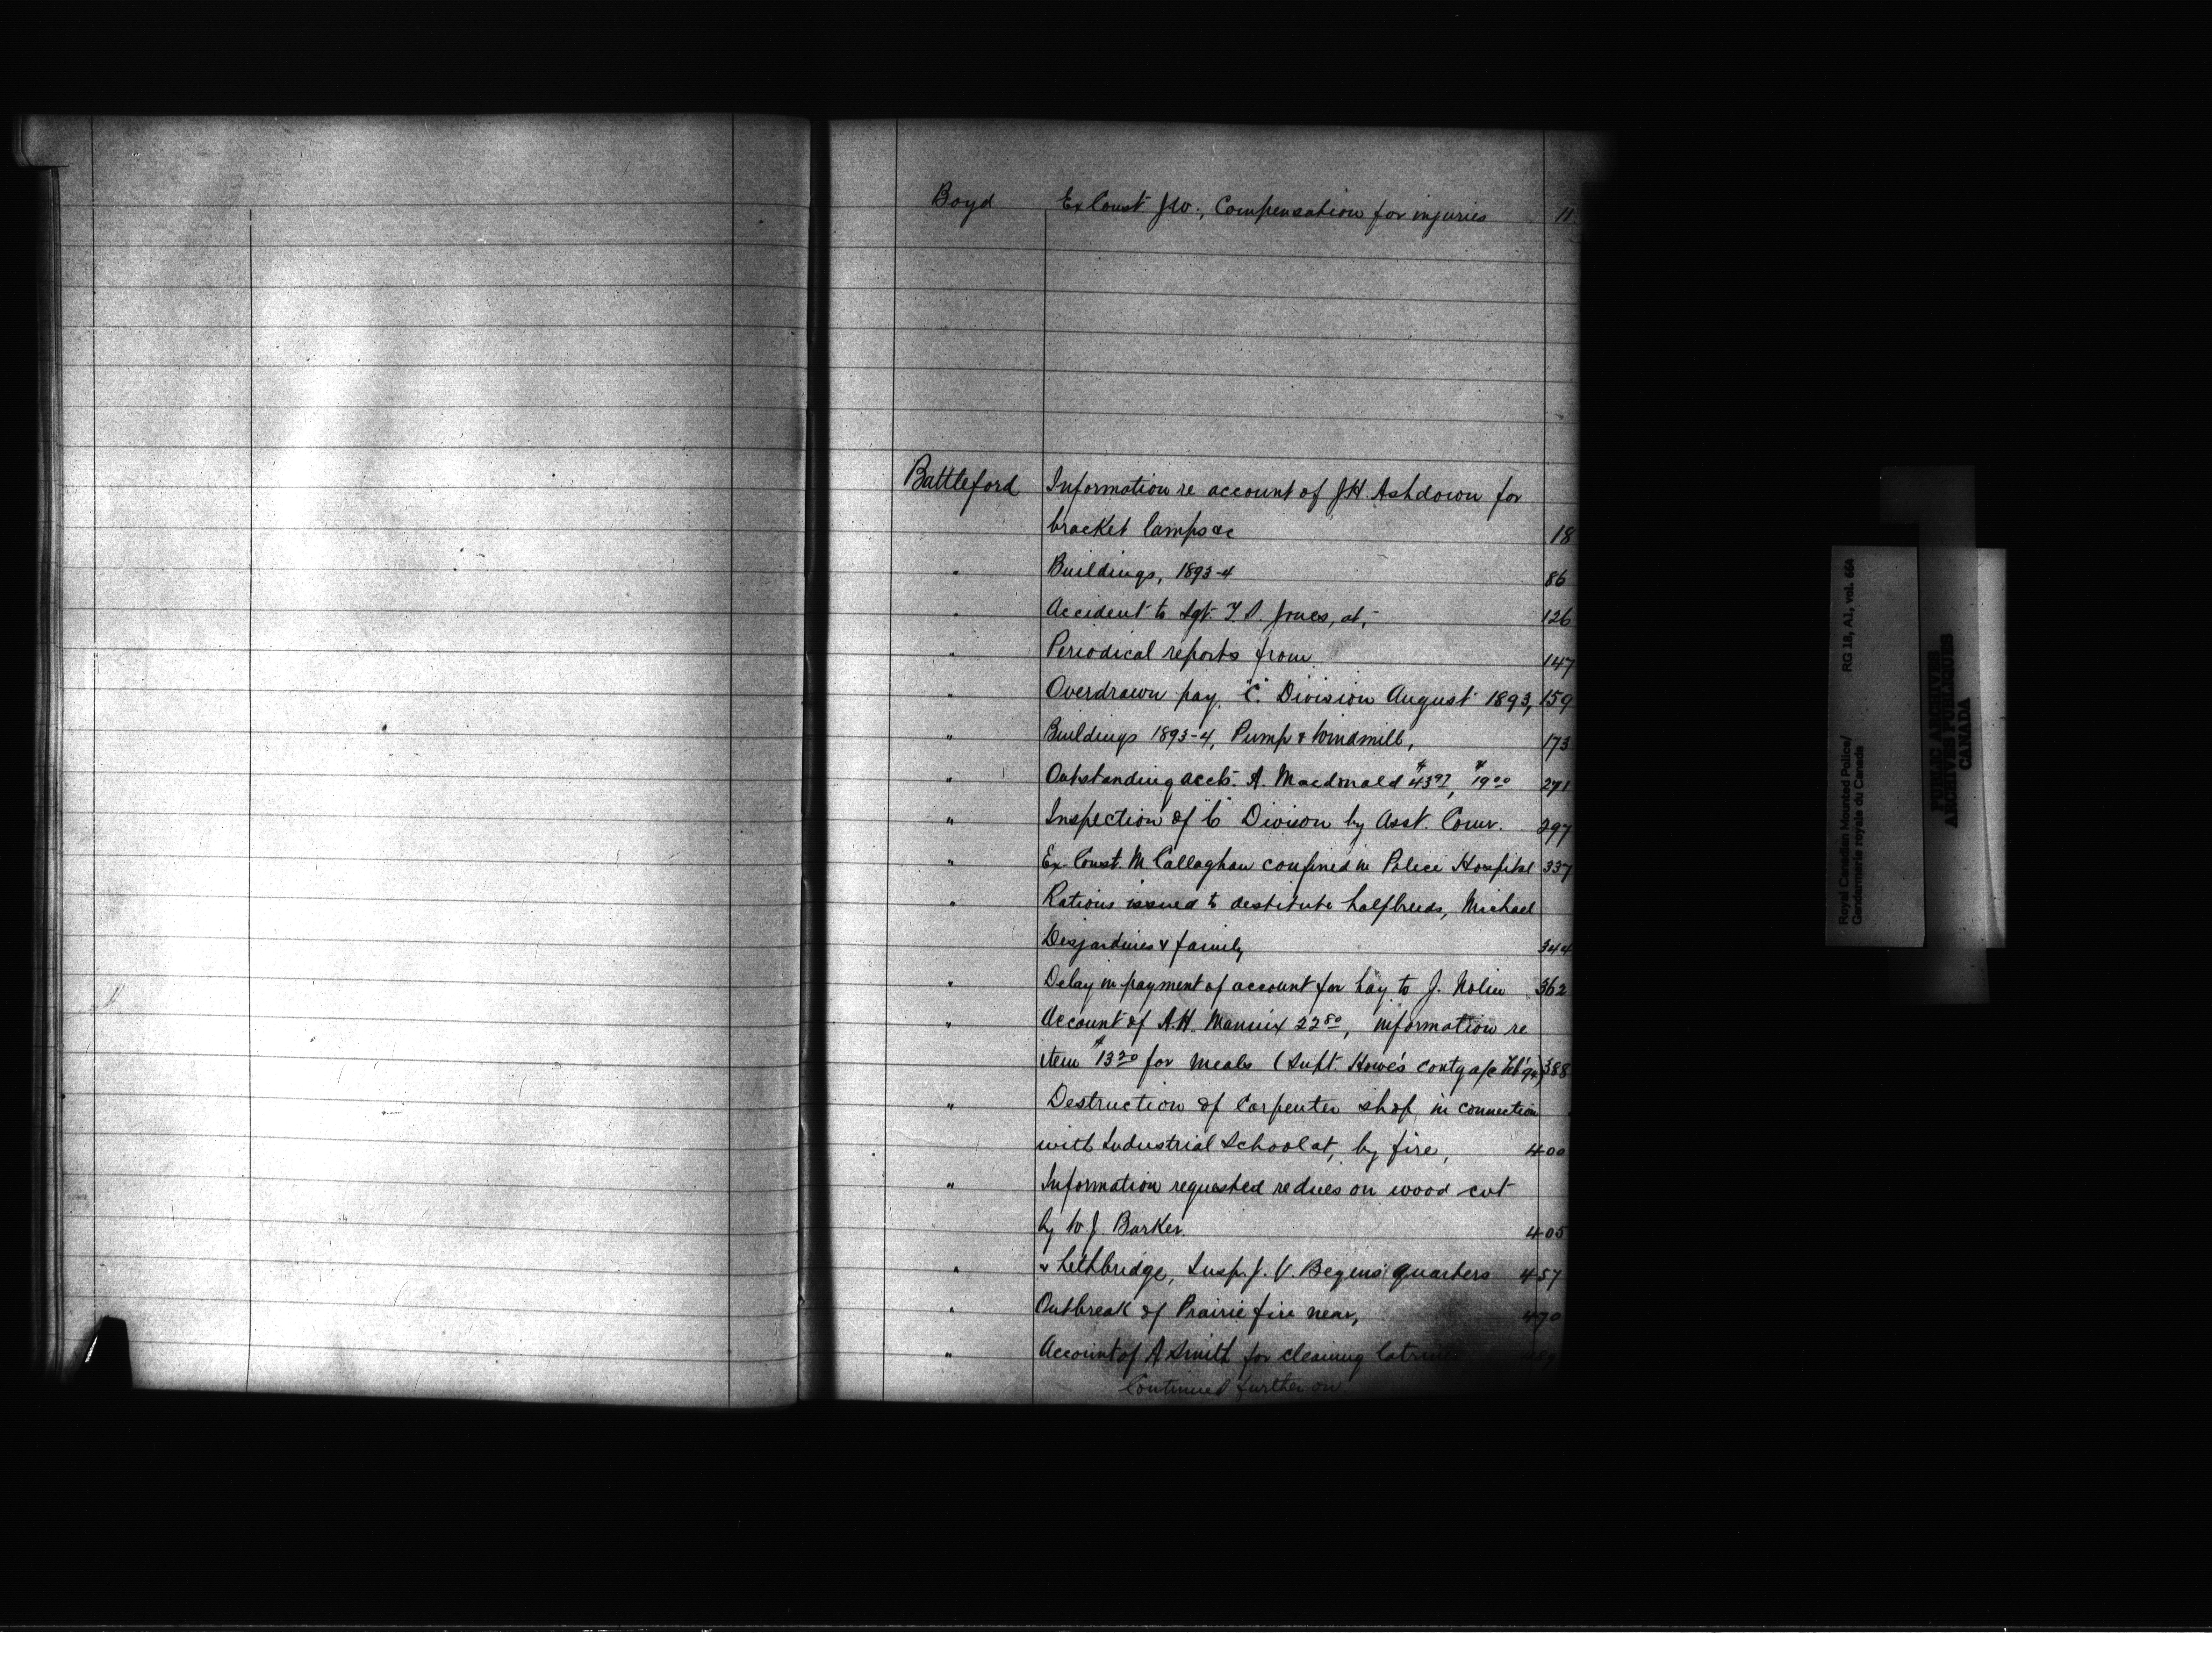 Boyd Ex Const J.W., Compensation for injuries 11
Battleford Information re account of J.H. Ashdown for
bracket lamps &c 18
" Buildings, 1893-4 86
" Accident to Sgt. Jones, at, 126
" Periodical reports from 147
" Overdrawn pay, "C" Division August 1893, 159
" Buildings 1893-4, Pump & Windmill, 173
" Outstanding accts. A. Macdonald $43.97, $19.00 271
" Inspection of "C" Division by Asst. Comr. 297
" Ex-Const. M Callaghan confined in Police Hospital 337
" Rations issued to destitute halfbreeds, Michael
Desjardines & family 344
" Delay in payment of account for hay to J. Nolin 362
" Account of A.H. Mannix 22.80, information re
item $13.20 for meals (Supt. Howe's contg a/c Feb '94) 388
" Destruction of Carpenter shop in connection
with Industrial School at, by fire, 400
" Information requested re dues on wood cut
by W J Barker 405
" & Lethbridge, Insp. J. V. Begin's quarters 457
" Outbreak of Prairie fire near, 470
" Account of A Smith for cleaning latrines
Continued further on
Royal Canadian Mounted Police/ RG 18, A1, vol. 664
Gendarmerie royale du Canada
PUBLIC ARCHIVES
ARCHIVES PUBLIQUES
CANADA